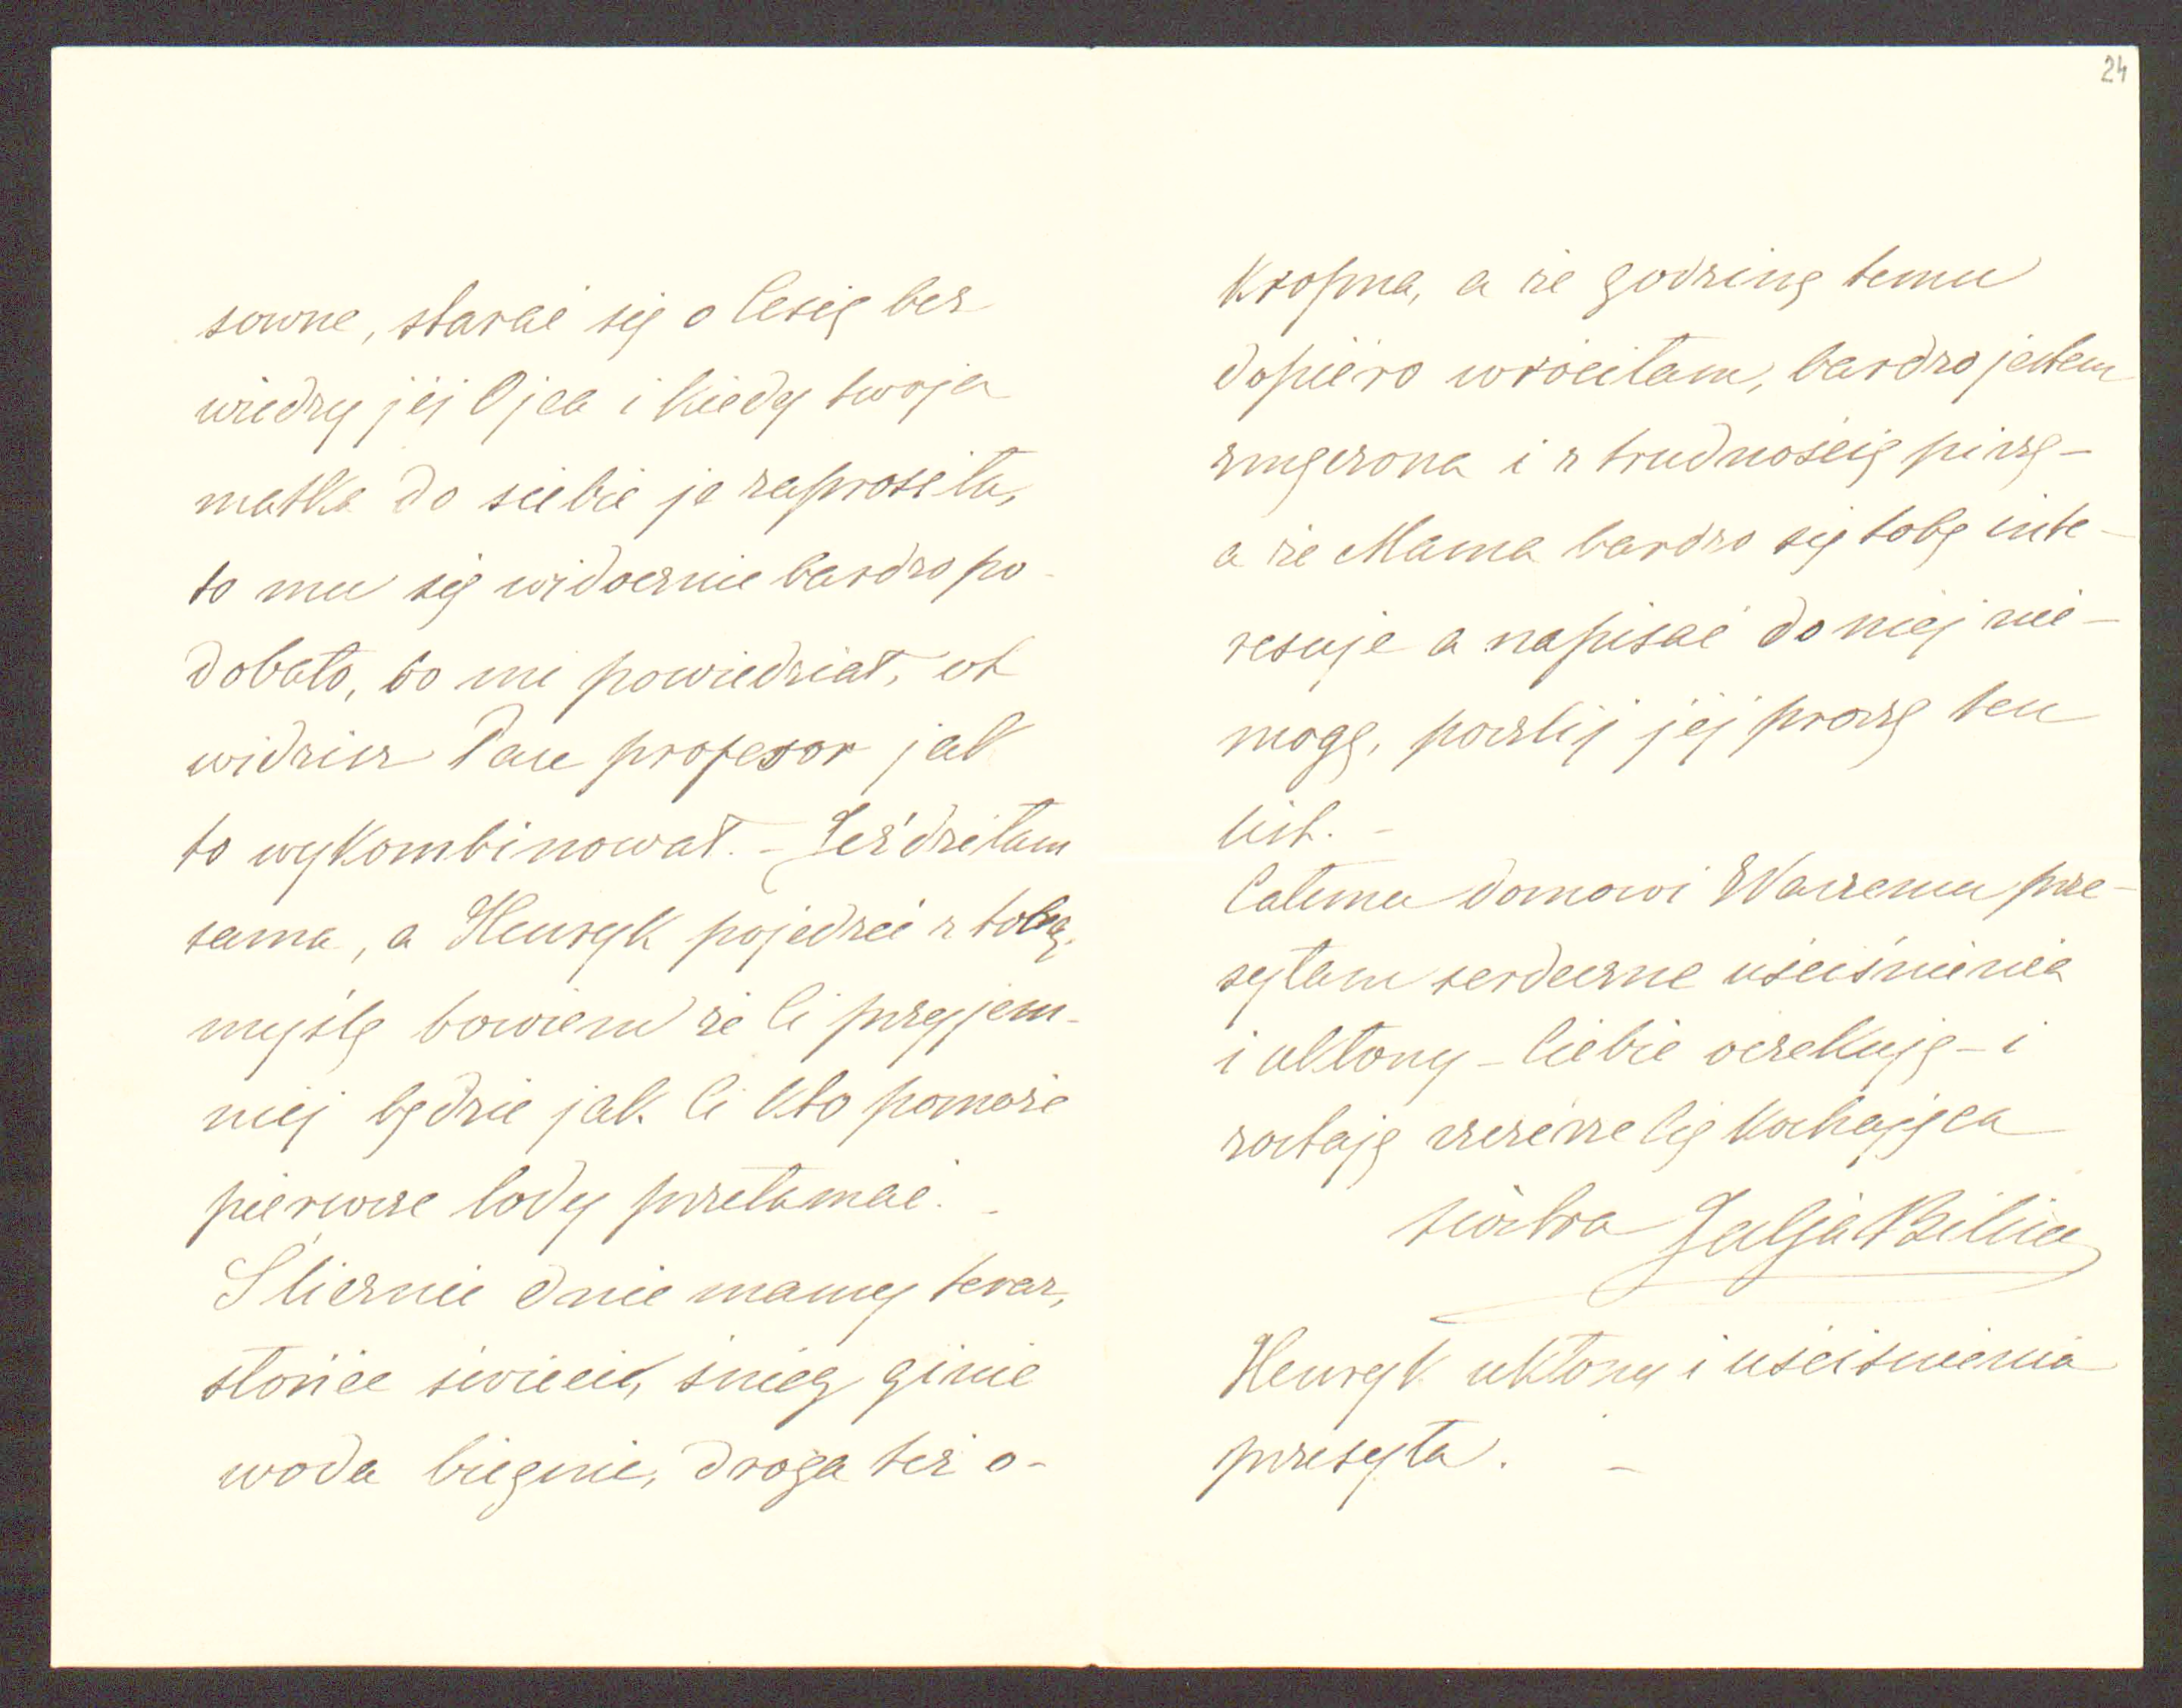 sowne, starać się o Cesię bez
wiedzy jej Ojca i kiedy twoja
matka do siebie ją zaprosiła,
to mu się widocznie bardzo po-
dobało, bo mi powiedział, ot
widzisz Pan profesor jak
to wykombinował. - Jeździłam
sama, a Henryk pojedzie z tobą,
myślę bowiem że Ci przyjem-
niej będzie jak Ci kto pomoże
pierwsze lody przełamać. -
Ślicznie dnie mamy teraz,
słońce świeci, śnieg ginie
woda biegnie, droga też o-
24
kropna, a że godzinę temu
dopiero wróciłam, bardzo jestem
zmęczona i z trudnością piszę -
a że Mama bardzo się tobą inte-
resuje a napisać do niej nie -
mogę, poszlij jej proszę ten
list. -
Całemu domowi Waszemu prze-
syłam serdeczne uściśnienia
i ukłony - Ciebie oczekuję - i
zostaję szczerze Cię kochająca
siostra
Henryk ukłony i uściśnienia
przesyła. -